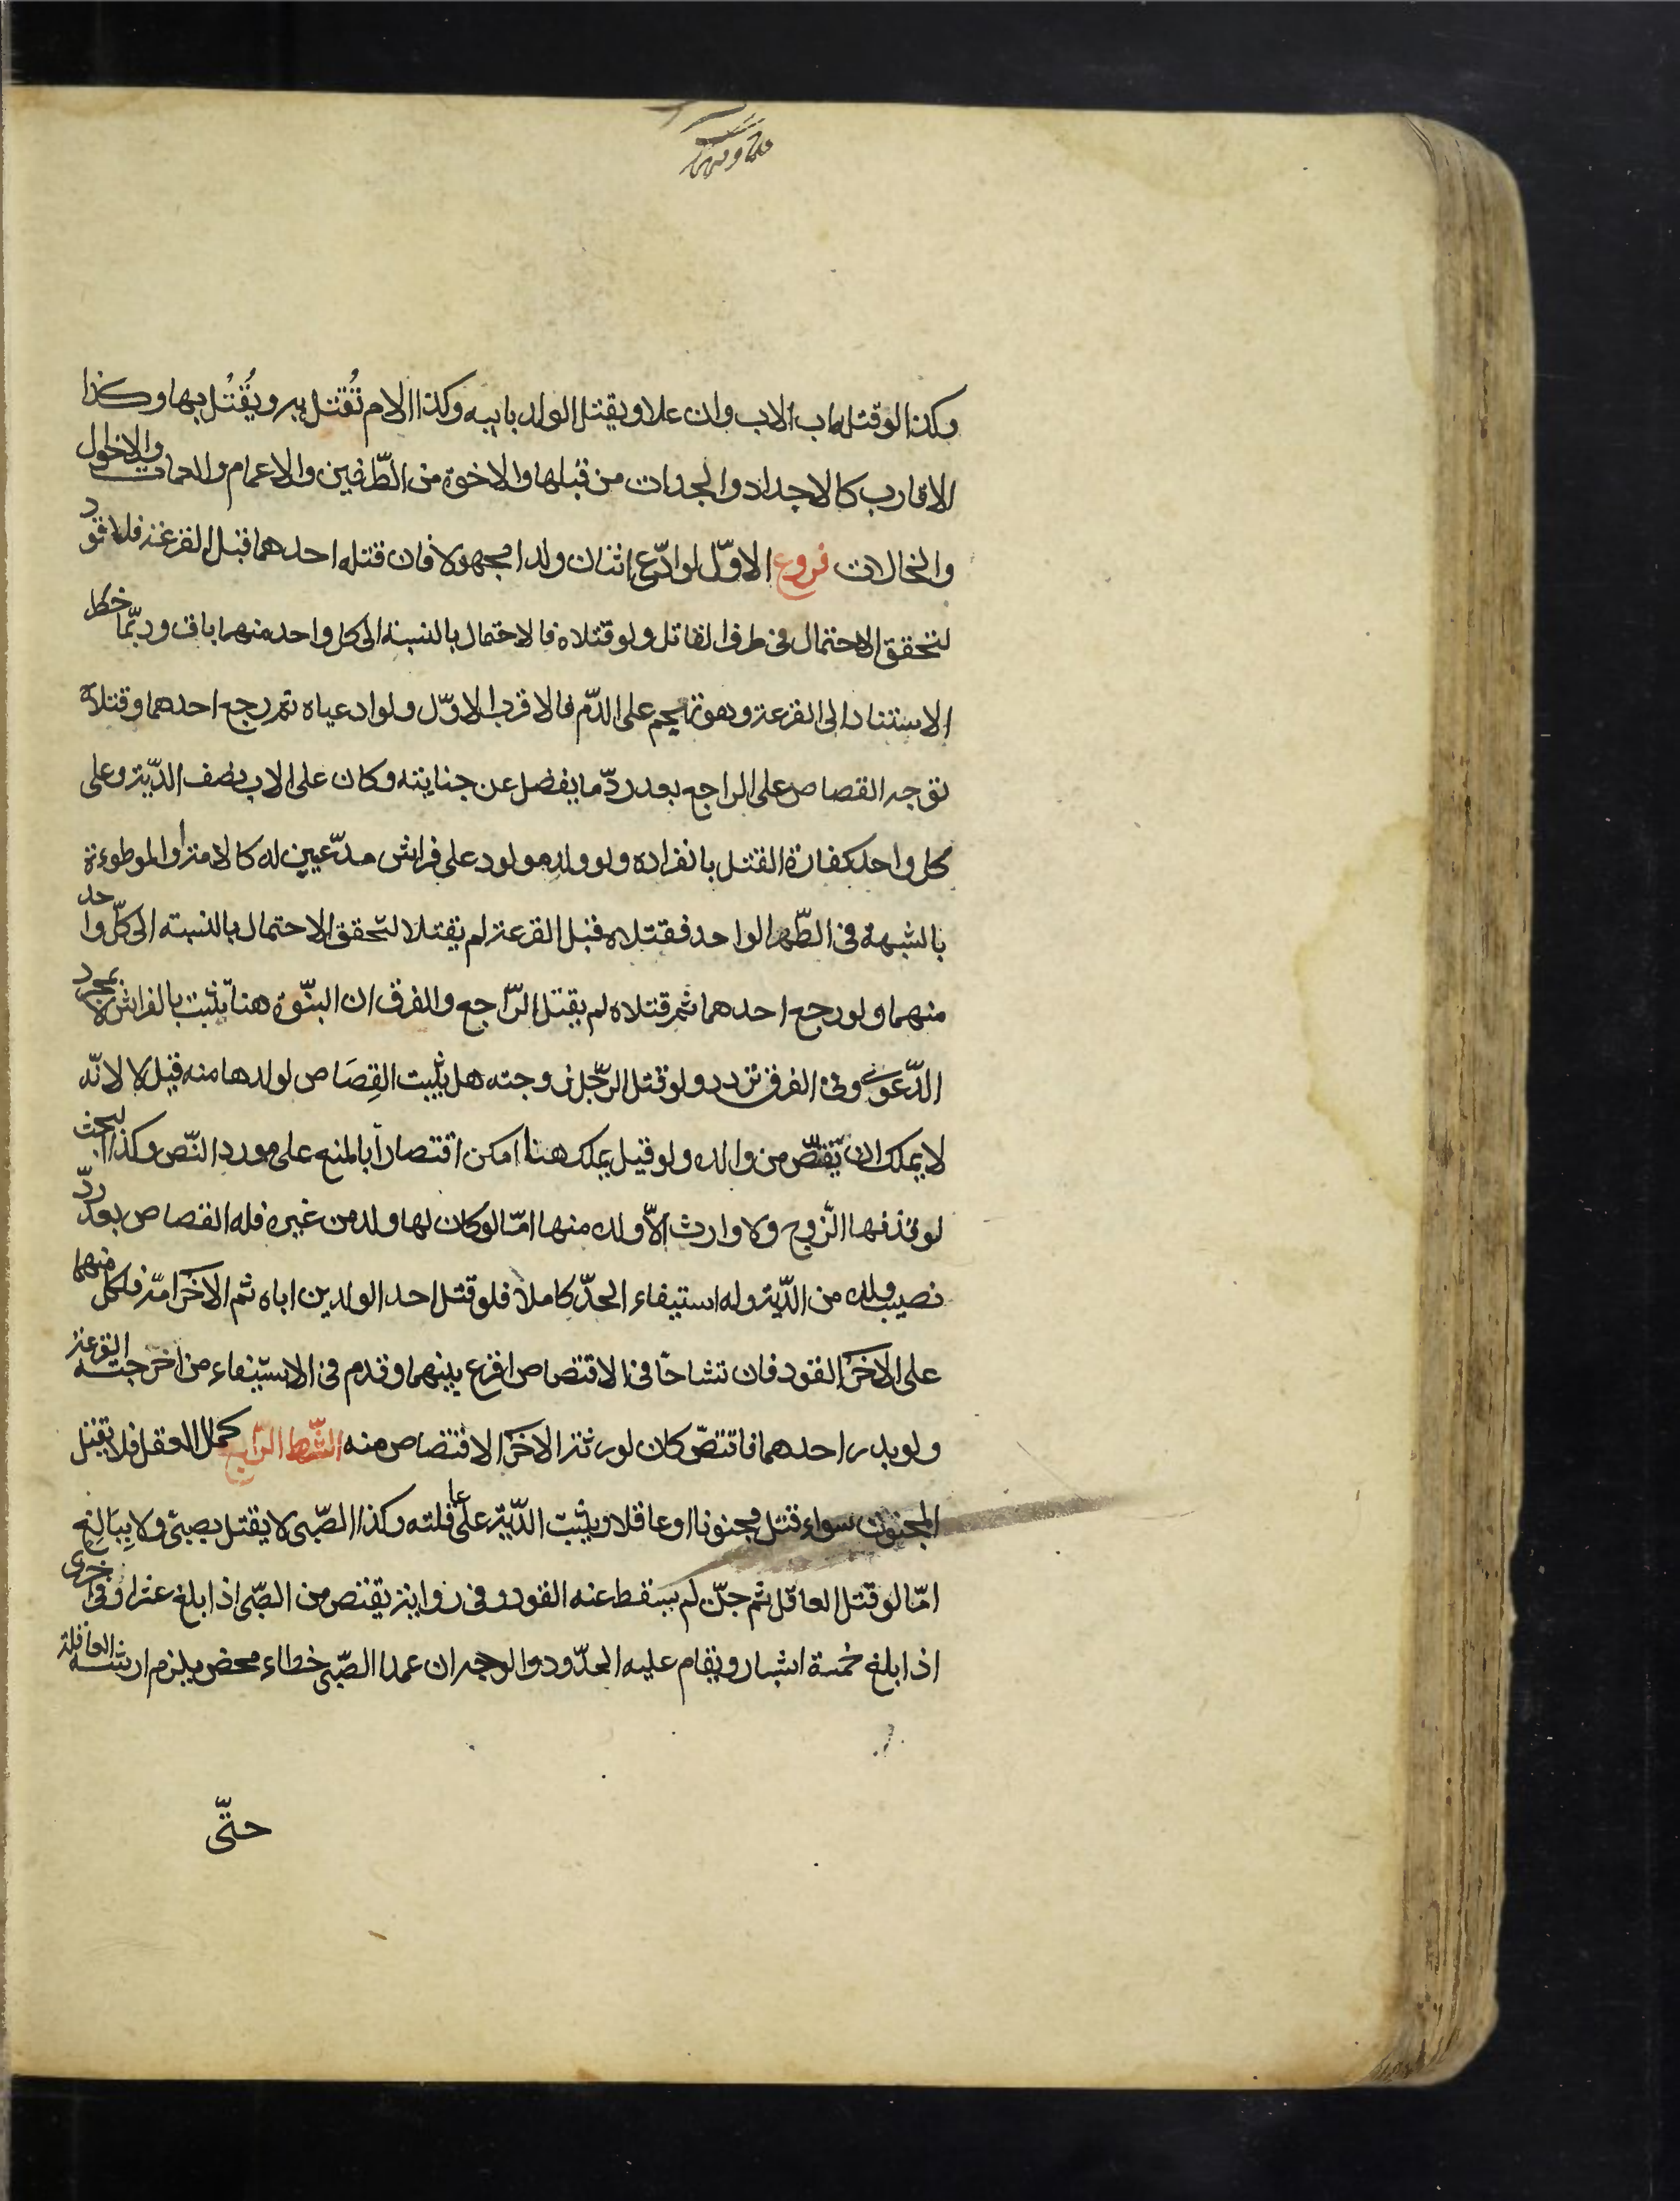 وكذا لو قتله اب الاب وان علا ويقتل الولد بابيه وكذا الام تُقتل به ويُقتُل بها وكذا
الاقارب كالاجداد والجدات من قبلها والاخوة من الطّرفين والاعمام والعمات والاخوال
والخالات فروع الاوّل لو ادّعى اثنان ولدا مجهولا فان قتله احدهما قبل القرعة فلا قود
لتحقق الاحتمال فى طرف القاتل ولو قتلاه فالاحتمال بالنسبة الى كل واحد منهما باق وربّما خطر
الاستناد الى القرعة وهو تهجم على الدّم فالاقرب الاوّل ولو ادعياه ثم رجع احدهما وقتلاه
توجه القصاص على الراجع بعد ردّ ما يفضل عن جنايته وكان على الاب نصف الدّية وعلى
كل واحد كفارة القتل بانفراده ولو ولد مولود على فراش مدّعيين له كالامة او الموطوءة
بالشبهة فى الطّهر الواحد فقتلاه قبل القرعة لم يقتلا لتحقق الاحتمال بالنسبة الى كلّ واحد
منهما ولو رجع احدهما ثم قتلاه لم يقتل الرّاجع والفرق ان البنّوة هنا تثبت بالفراش لا بمجرد
الدّعوى وفى الفرق تردد ولو قتل الرّجل زوجته هل يثبت القِصَاص لولدها منه قيل لا لانّه
لا يملك ان يّقتصّ من والده ولو قيل يملك هنا امكن اقتصاراً بالمنع على مورد النّص وكذا البحث
لو قذفها الزّوج ولا وارث الاّ ولده منها امّا لو كان لها ولد من غيره فله القصاص بعد ردّ
نصيب ولده من الدّية وله استيفاء الحدّ كاملاً فلو قتل احد الولدين اباه ثم الاخر امّه فلكل منهما
على الاخر القود فان تشاحّا فى الاقتصاص اقرع بينهما وقدم فى الاستيفاء من اخرجته القرعة
ولو بدر احدهما فاقتصّ كان لورثة الاخر الاقتصاص منه الشّرط الرّابع كمال العقل فلا يقتل
المجنون سواء قتل مجنونا او عاقلا ويثبت الدّية على عاقلته وكذا الصّبى لا يقتل بصبىّ ولا ببَالِغ
امّا لو قتل العاقل ثم جنّ لم يسقط عنه القود وفى رواية يقتص من الصّبى اذا بلغ عشرا وفى اخرى
اذا بلغ خمسة اشبار ويقام عليه الحدّود والوجه ان عمد الصّبى خطاء محض يلزم ارشه العاقلة
حتّى